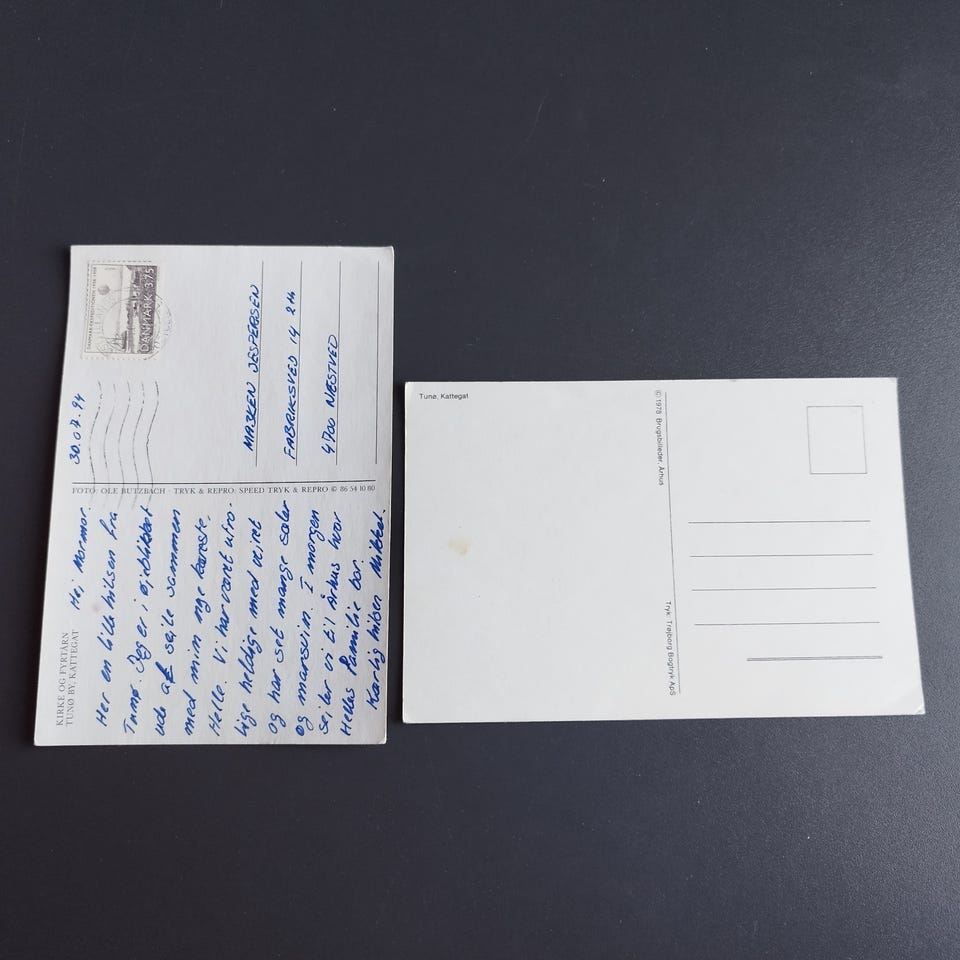 KIRKE OG FYRTÅRN
TUNØ BY, KATTEGAT
Hej Mormor.
Her en lille hilsen fra
Tunø. Jeg er i øjeblikket
ude at sejle sammen
med min nye kæreste,
Helle. Vi har været utro-
lige heldige med vejret
og har set mange sæler
og marsvin. I morgen
sejler vi til Århus hvor
Helles familie bor.
Kærlig hilsen Mikkel.
FOTO: OLE BUTZBACH · TRYK & REPRO: SPEED TRYK & REPRO © 86 54 10 80
30.07.94
DANMARK 3.75
DANMARK-EKSPEDITIONEN 1906-1908
MAJKEN JESPERSEN
FABRIKSVEJ 14 2th
4700 NÆSTVED
Tunø, Kattegat
© 1978 Brugsbilleder, Århus
Tryk: Trøjborg Bogtryk ApS